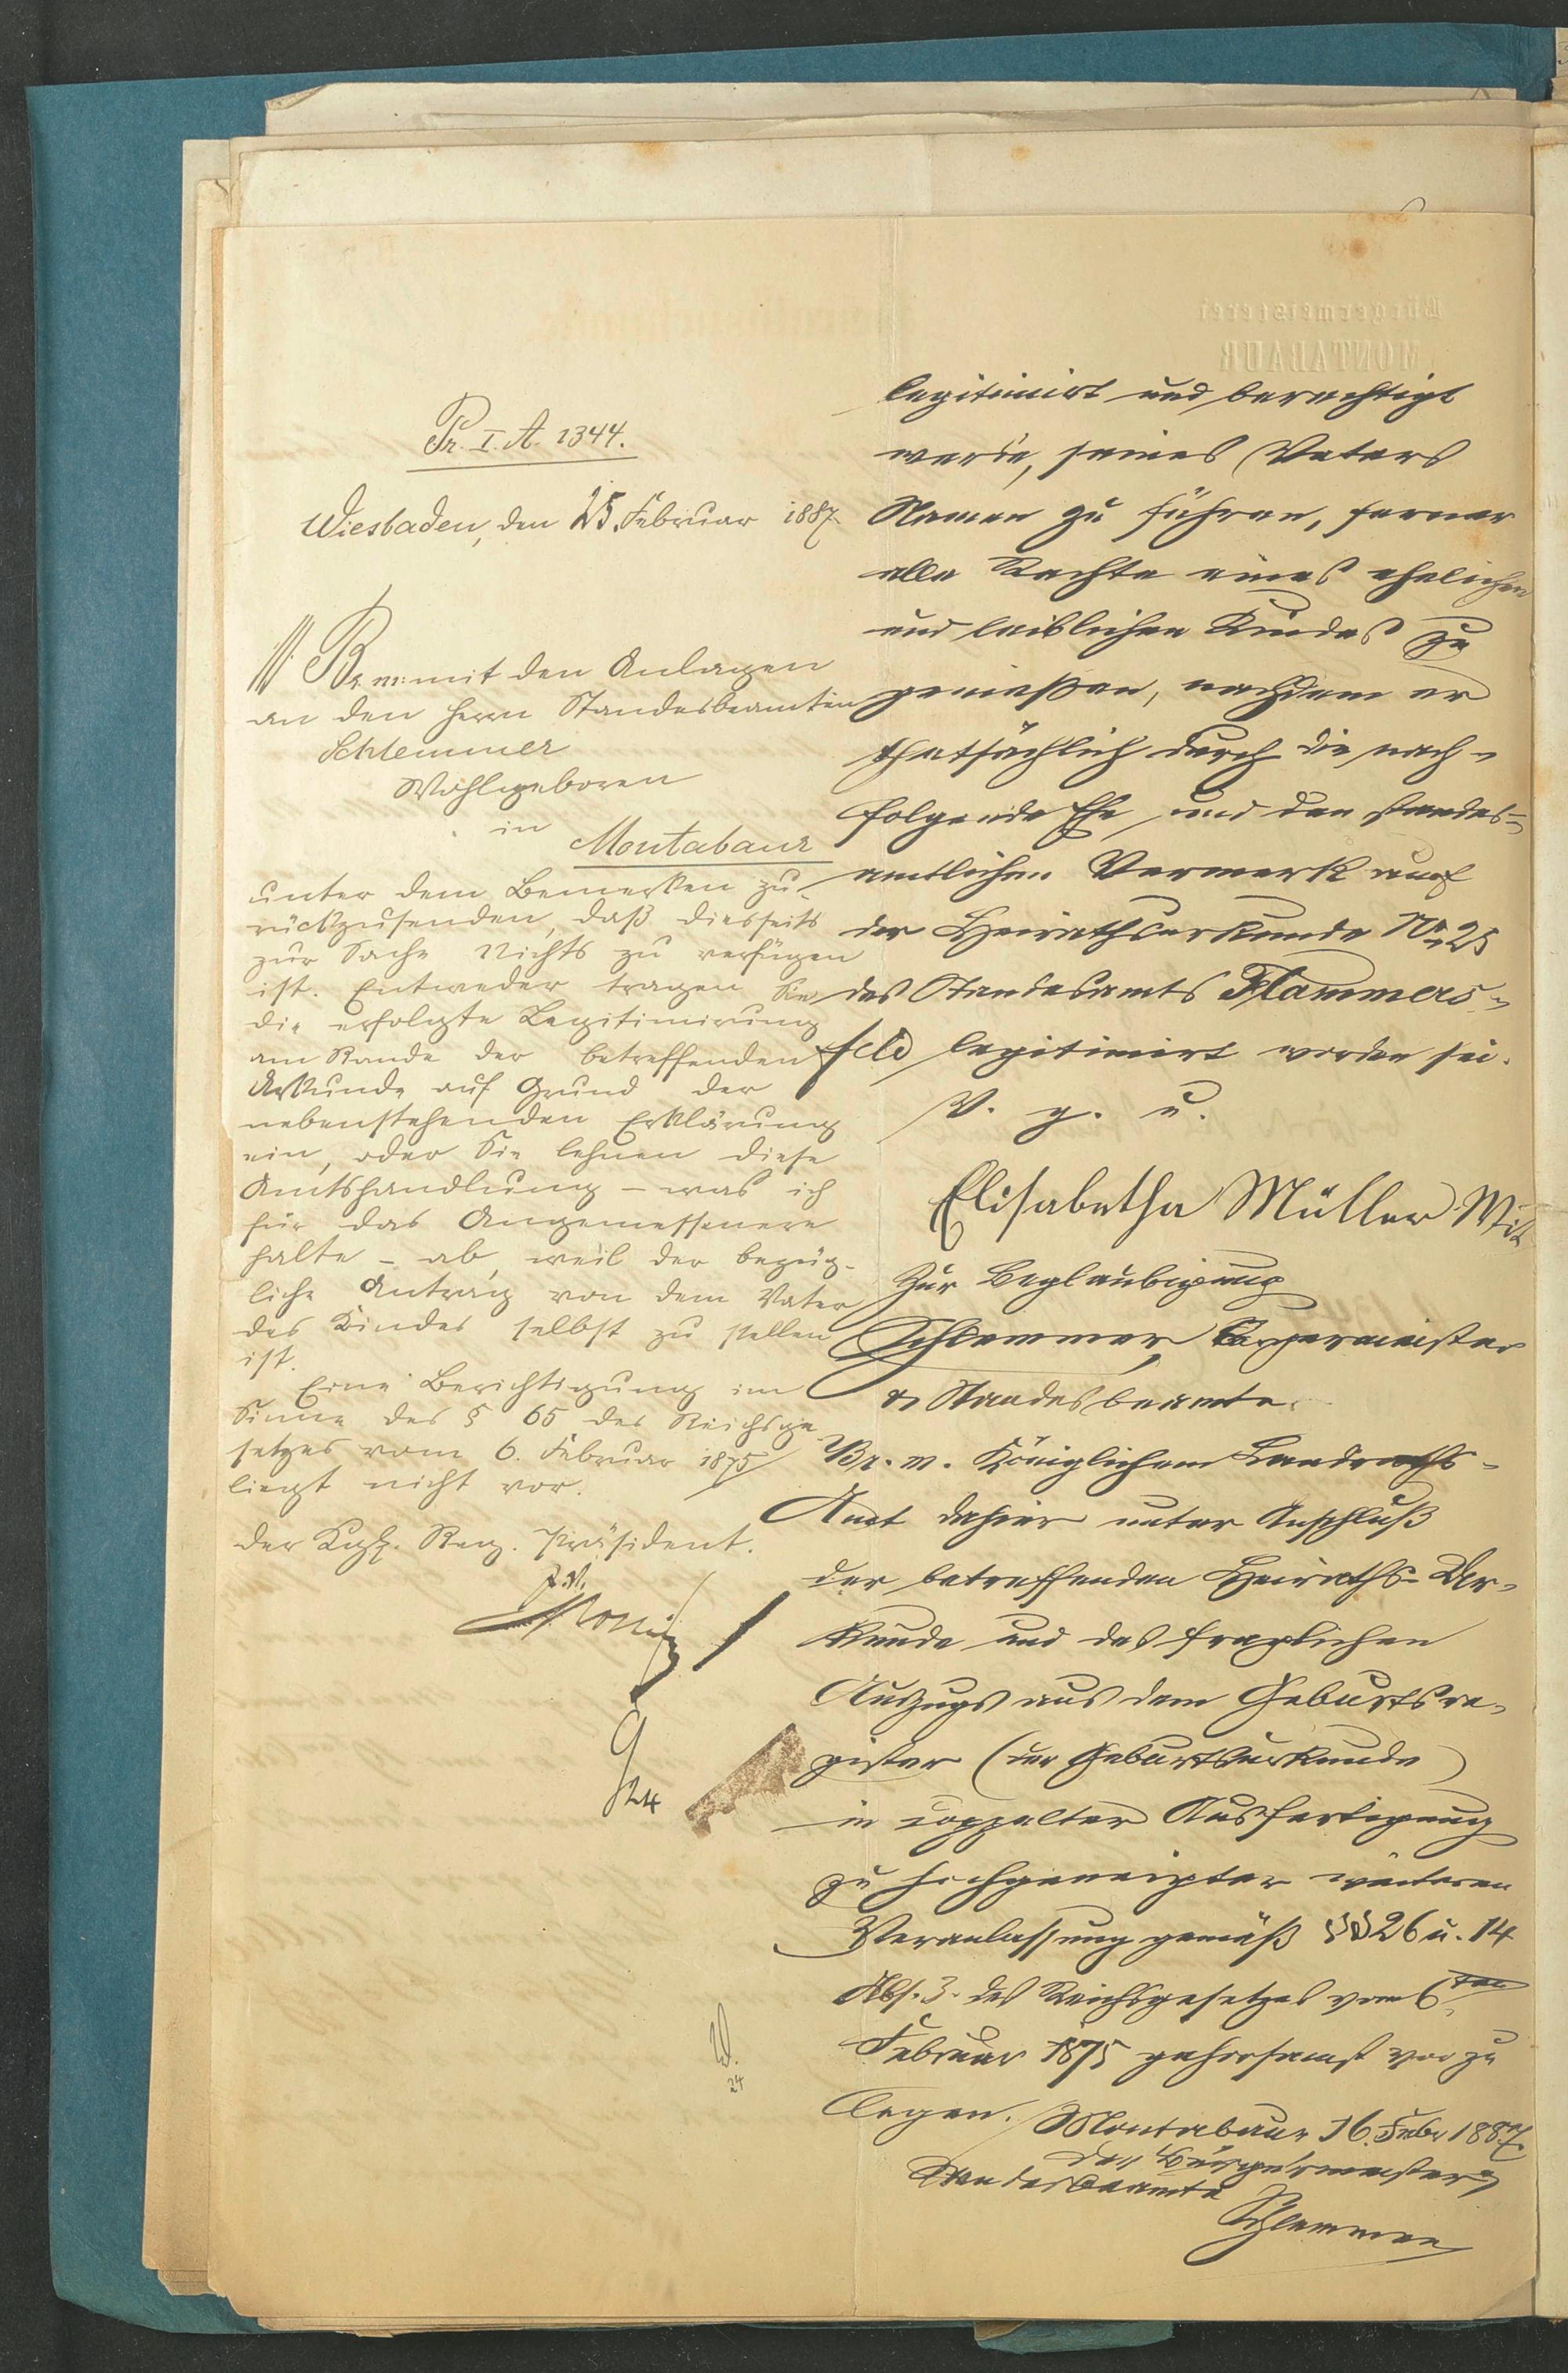 Pr. I. A. 1344.
Wiesbaden, den 25. Februar 1887.
Br. m. mit den Anlagen
an den Herrn Standesbeamten
Schlemmer
Wohlgeboren
in
Montabaur
unter dem Bemerken zu-
rückzusenden, daß diesseits
zur Sache Nichts zu verfügen
ist. Entweder tragen Sie
die erfolgte Legitimirung
am Rande der betreffenden
Urkunde auf Grund der
nebenstehenden Erklärung
ein, oder Sie lehnen diese
Amtshandlung – was ich
für das Angemessenere
halte – ab, weil der bezüg-
liche Antrag von dem Vater
des Kindes selbst zu stellen
ist.
Eine Berichtigung im
Sinne des § 65 des Reichsge-
setzes vom 6. Februar 1875
liegt nicht vor.
Der Kgl. Reg. Präsident.
24
W.
24
legitimirt und berechtigt
werde, seines Vaters
Namen zu führen, ferner
alle Rechte eines ehelichen
und leiblichen Kindes zu
genießen, nachdem er
thatsächlich durch die nach-
folgende Ehe, und den standes-
amtlichen Vermerk auf
der Heirathsurkunde No 25
des Standesamts Flammers-
feld legitimirt worden sei.
V. g. u.
Elisabetha Müller Wit
Zur Beglaubigung
Schlemmer, Bürgermeister
& Standesbeamte.
Br. m. Königlichem Landraths-
Amt dahier unter Anschluß
der betreffenden Heiraths-Ur-
kunde und des fraglichen
Auszugs aus dem Geburtsre-
gister (der Geburtsurkunde)
in doppelter Ausfertigung
zu hochgeneigter weiteren
Veranlassung gemäß §§ 26 u. 14
Abs. 3. des Reichsgesetzes vom 6ten
Februar 1875 gehorsamst vor zu
legen. Montabaur 16. Febr 1887.
Der Bürgermeister
Standesbeamte
Schlemmer
Bürgermeisterei
MONTABAUR